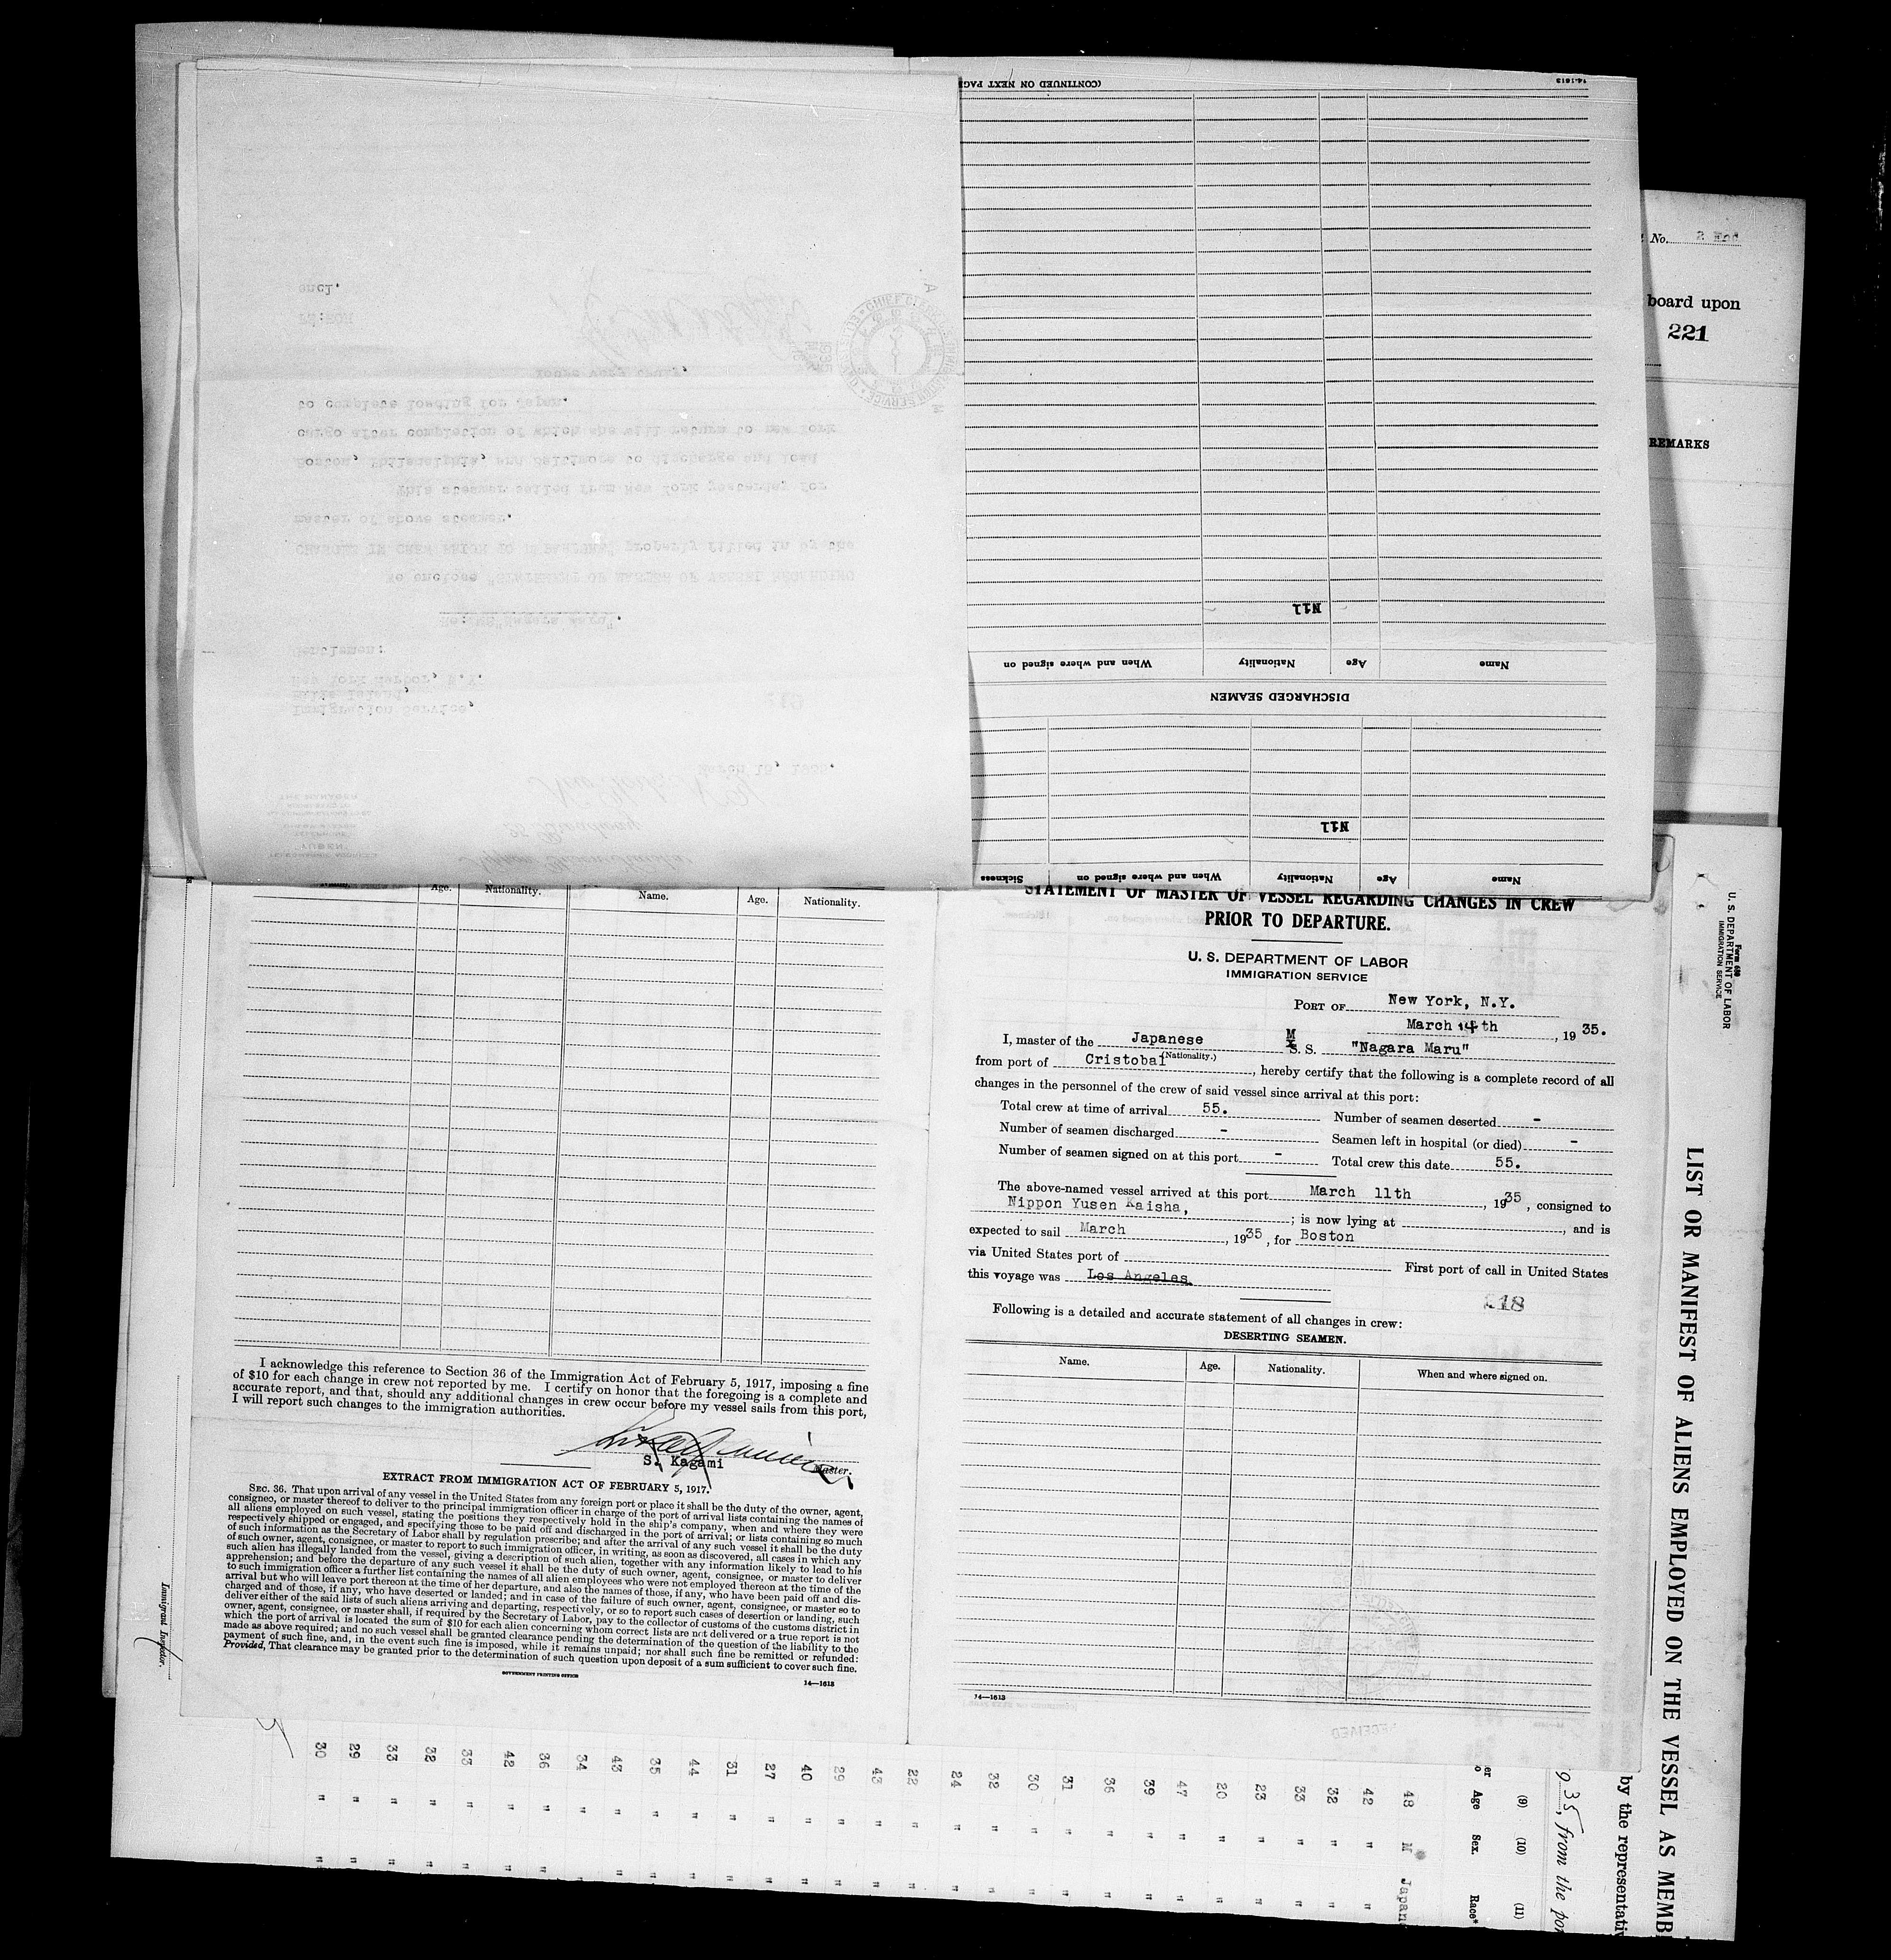 (CONTINUED ON NEXT PAGE
14-1613
Nil
When and where signed on
Nationality
Age
Name
DISCHARGED SEAMEN
Nil
Sickness
When and where signed on
Nationality
Age
Name
encl.
Yours very truly,
to complete loading for Japan.
cargo after completion of which she will return to New York
Boston, Philadelphia, and Baltimore to discharge and load
This steamer sailed from New York yesterday for
master of above steamer.
CHANGES IN CREW PRIOR TO DEPARTURE" properly filled in by the
We enclose "STATEMENT OF MASTER OF VESSEL REGARDING
Re: MS"Nagara Maru".
Gentlemen:
New York Harbor, N.Y.
Ellis Island,
Immigration Service,
March 15, 1935.
New York, N.Y.
25 Broadway
No. 2
board upon
221
REMARKS
Age. Nationality. Name. Age. Nationality.
I acknowledge this reference to Section 36 of the Immigration Act of February 5, 1917, imposing a fine
of $10 for each change in crew not reported by me. I certify on honor that the foregoing is a complete and
accurate report, and that, should any additional changes in crew occur before my vessel sails from this port,
I will report such changes to the immigration authorities.
S. Kagami
Master.
EXTRACT FROM IMMIGRATION ACT OF FEBRUARY 5, 1917.
SEC. 36. That upon arrival of any vessel in the United States from any foreign port or place it shall be the duty of the owner, agent,
consignee, or master thereof to deliver to the principal immigration officer in charge of the port of arrival lists containing the names of
all aliens employed on such vessel, stating the positions they respectively hold in the ship's company, when and where they were
respectively shipped or engaged, and specifying those to be paid off and discharged in the port of arrival; or lists containing so much
of such information as the Secretary of Labor shall by regulation prescribe; and after the arrival of any such vessel it shall be the duty
of such owner, agent, consignee, or master to report to such immigration officer, in writing, as soon as discovered, all cases in which any
such alien has illegally landed from the vessel, giving a description of such alien, together with any information likely to lead to his
apprehension; and before the departure of any such vessel it shall be the duty of such owner, agent, consignee, or master to deliver
to such immigration officer a further list containing the names of all alien employees who were not employed thereon at the time of the
arrival but who will leave port thereon at the time of her departure, and also the names of those, if any, who have been paid off and dis-
charged and of those, if any, who have deserted or landed; and in case of the failure of such owner, agent, consignee, or master so to
deliver either of the said lists of such aliens arriving and departing, respectively, or so to report such cases of desertion or landing, such
owner, agent, consignee, or master shall, if required by the Secretary of Labor, pay to the collector of customs of the customs district in
which the port of arrival is located the sum of $10 for each alien concerning whom correct lists are not delivered or a true report is not
made as above required; and no such vessel shall be granted clearance pending the determination of the question of the liability to the
payment of such fine, and, in the event such fine is imposed, while it remains unpaid; nor shall such fine be remitted or refunded:
Provided, That clearance may be granted prior to the determination of such question upon deposit of a sum sufficient to cover such fine.
GOVERNMENT PRINTING OFFICE
14—1613
Immigrant Inspector.
STATEMENT OF MASTER OF VESSEL REGARDING CHANGES IN CREW
PRIOR TO DEPARTURE.
U. S. DEPARTMENT OF LABOR
IMMIGRATION SERVICE
PORT OF New York, N.Y.
March 14th, 1935.
I, master of the Japanese M S. S. "Nagara Maru"
(Nationality.)
from port of Cristobal, hereby certify that the following is a complete record of all
changes in the personnel of the crew of said vessel since arrival at this port:
Total crew at time of arrival 55. Number of seamen deserted -
Number of seamen discharged - Seamen left in hospital (or died) -
Number of seamen signed on at this port - Total crew this date 55.
The above-named vessel arrived at this port March 11th, 1935, consigned to
Nippon Yusen Kaisha, ; is now lying at , and is
expected to sail March , 1935, for Boston
via United States port of First port of call in United States
this voyage was Los Angeles
218
Following is a detailed and accurate statement of all changes in crew:
DESERTING SEAMEN.
Name. Age. Nationality. When and where signed on.
14—1613
RECEIVED
Form 680
U. S. DEPARTMENT OF LABOR
IMMIGRATION SERVICE
LIST OR MANIFEST OF ALIENS EMPLOYED ON THE VESSEL AS MEMB
by the representati
935, from the por
(9) (10) (11)
Age Sex. Race*
48 M Japan
42 " "
32 " "
33 " "
23 " "
20 " "
47 " "
39 " "
36 " "
31 " "
30 " "
32 " "
24 " "
22 " "
43 " "
29 " "
40 " "
27 " "
31 " "
44 " "
35 " "
43 " "
34 " "
36 " "
42 " "
33 " "
32 " "
33 " "
29 " "
30 " "